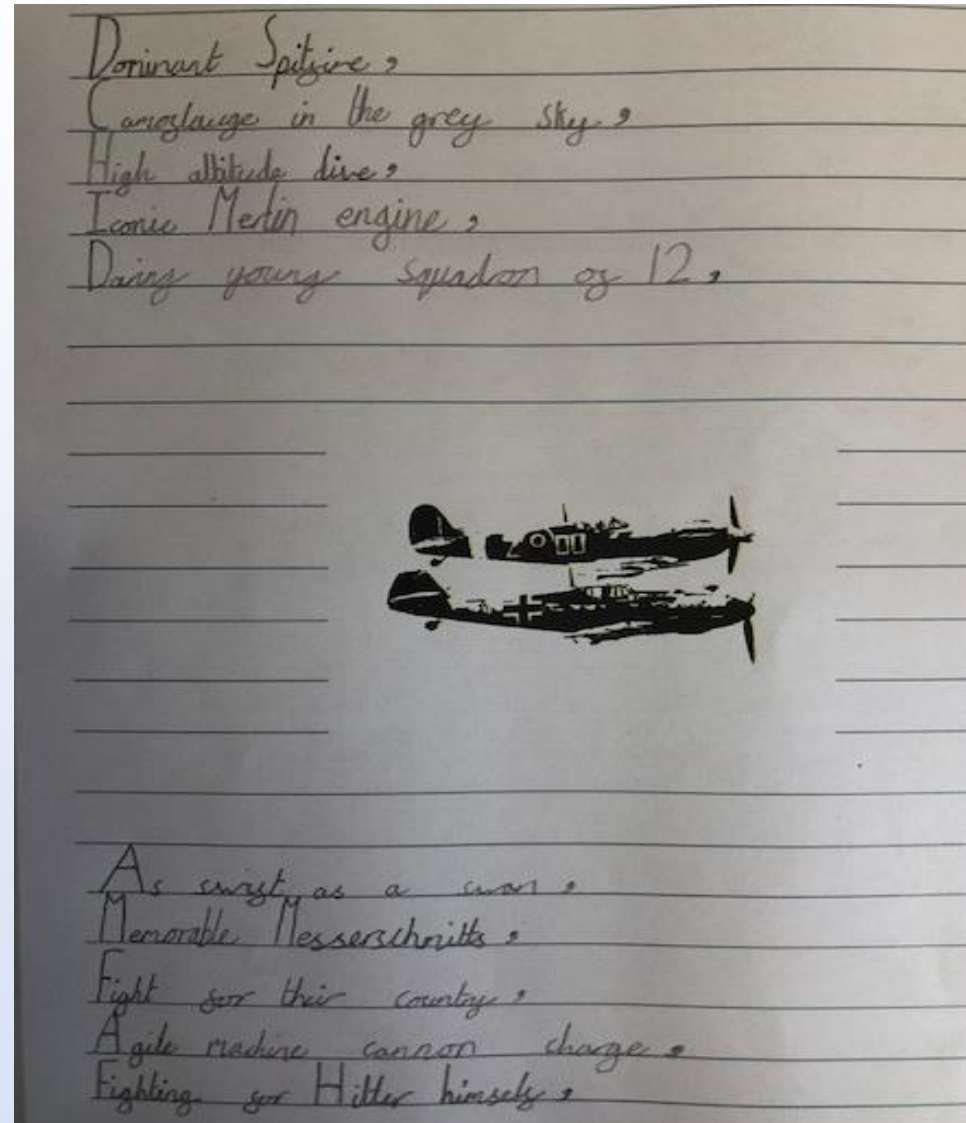 Dominant Spitfire,
Camoflauge in the grey sky,
High altitude dive,
Iconic Merlin engine,
Daring young squadron of 12,
As swift as a swan,
Memorable Messerschmitts,
Fight for their county,
Agile machine cannon charge,
Fighting for Hitler himself,